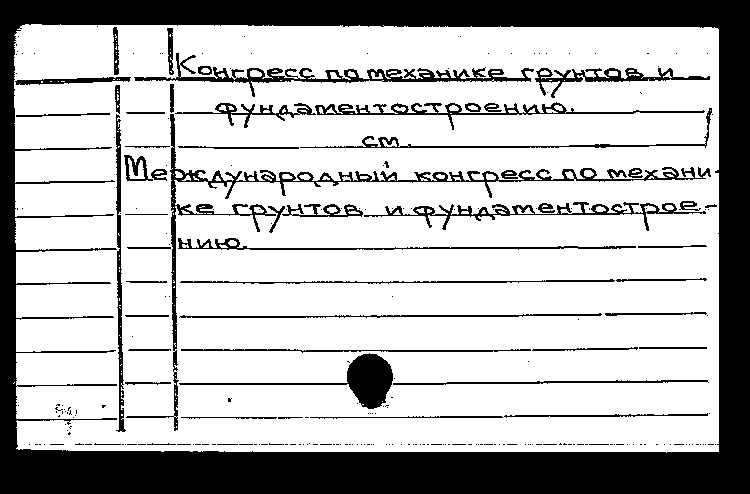 Конгресс по механике грунтов и
фундаментостроению.
см.
Международный конгресс по механи-
ке грунтов и фундаментострое-
нию.